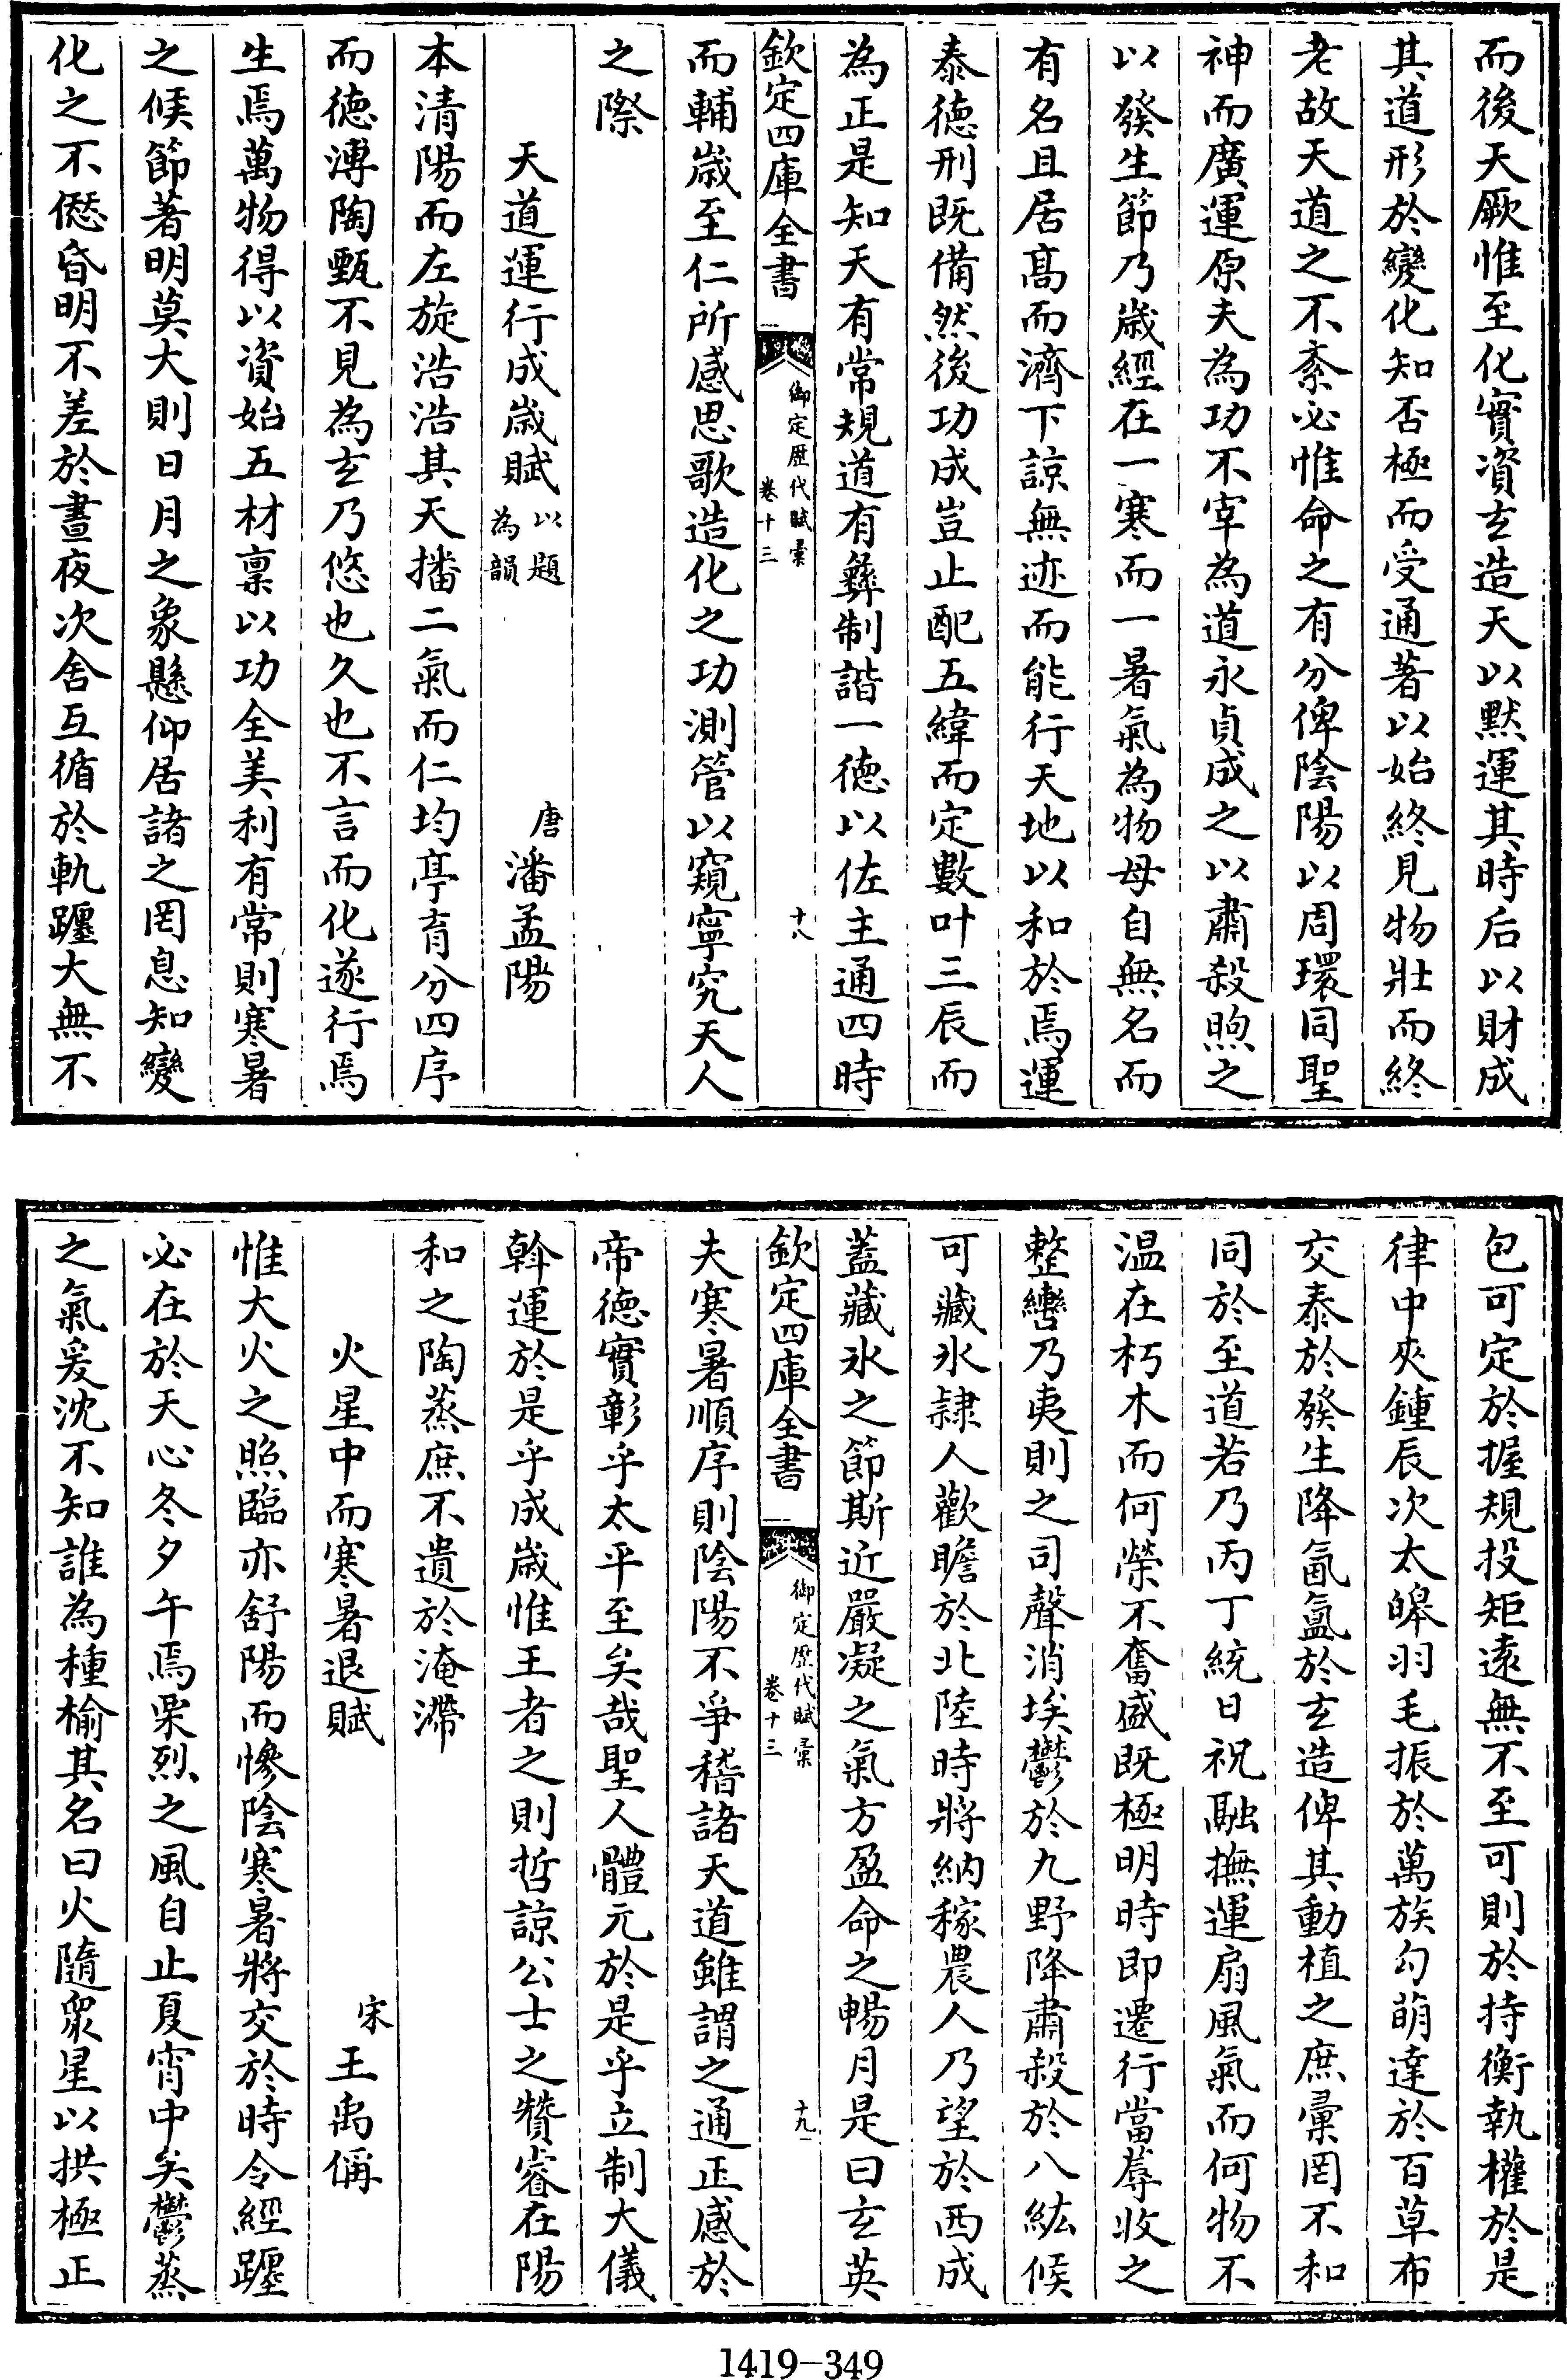 而後天厥惟至化實資玄造天以默運其時后以財成
其道形於變化知否極而受通著以始終見物壯而終
老故天道之不紊必惟命之有分俾陰陽以周環同聖
神而廣運原夫為功不宰為道永貞成之以肅殺煦之
以發生節乃歲經在一寒而一暑氣為物母自無名而
有名且居髙而濟下諒無迹而能行天地以和於焉運
泰徳刑既備然後功成豈止配五緯而定數叶三辰而
為正是知天有常規道有彝制諧一徳以佐主通四時
欽定四庫全書
御定歴代賦彙
卷十三
十八
而輔歲至仁所感思歌造化之功測管以窺寧究天人
之際
天道運行成歲賦 以題為韻
唐 潘孟陽
本清陽而左旋浩浩其天播二氣而仁均亭育分四序
而徳溥陶甄不見為玄乃悠也久也不言而化遂行焉
生焉萬物得以資始五材稟以功全美利有常則寒暑
之候節著明莫大則日月之象懸仰居諸之罔息知變
化之不僽昏明不差於晝夜次舍互循於軌躔大無不
包可定於握規投矩逺無不至可則於持衡執權於是
律中夾鍾辰次太皞羽毛振於萬族勾萌達於百草布
交泰於發生降氤氳於玄造俾其動植之庶彚罔不和
同於至道若乃丙丁統日祝融撫運扇風氣而何物不
温在朽木而何榮不奮盛既極明時即遷行當蓐收之
整轡乃夷則之司聲消埃鬱於九野降肅殺於八紘候
可藏氷隷人歡瞻於北陸時將納稼農人乃望於西成
蓋藏氷之節斯近嚴凝之氣方盈命之暢月是曰玄英
欽定四庫全書
御定歴代賦彙
卷十三
十九
夫寒暑順序則陰陽不爭稽諸天道雖謂之通正感於
帝徳實彰乎太平至矣哉聖人體元於是乎立制大儀
斡運於是乎成歲惟王者之則哲諒公士之贊睿在陽
和之陶蒸庶不遺於淹滯
火星中而寒暑退賦
宋 王禹偁
惟大火之照臨亦舒陽而慘陰寒暑將交於時令經躔
必在於天心冬夕午焉栗烈之風自止夏宵中矣鬱蒸
之氣爰沈不知誰為種榆其名曰火隨衆星以拱極正
1419-349